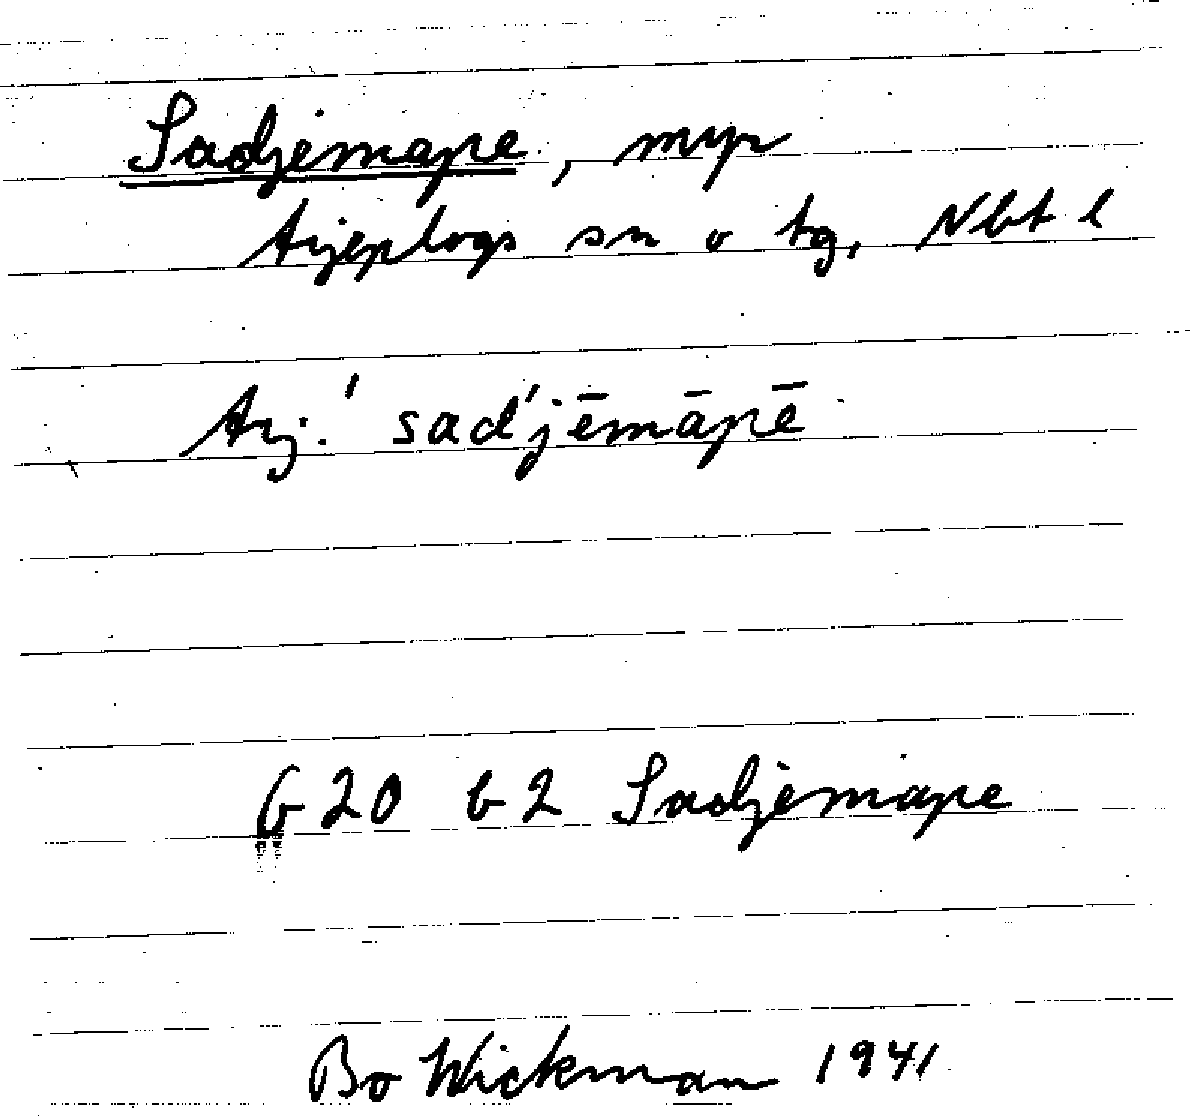 Sadjemape, myr
Arjeplogs sn o tg, Nbt l
Arj. ' sad'jēmāpē
G 20 b 2 Sadjemape
Bo Wickman 1941